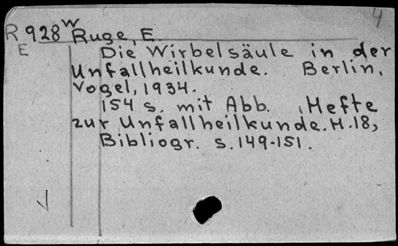 4
R 928 W Ruge, E.
E Die Wirbelsäule in der
Unfallheilkunde. Berlin,
Vogel, 1934.
154 s. mit Abb. (Hefte
zur Unfallheilkunde. H. 18,
Bibliogr. s. 149-151.